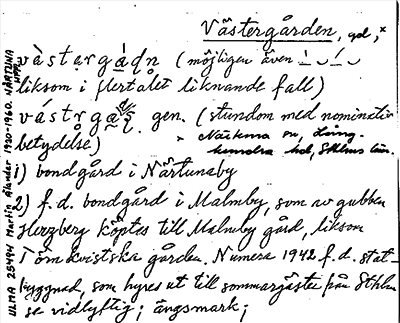 Västergården, gd,ˣ
västərgḁ́dn (möjligen även – ⌣ – ⌣
liksom i flertalet liknande fall)
västrgḁ̄ʂ gen. (stundom med nominativ
betydelse) × Närtuna sn, Lång-
hundra hd, Sthlms län.
1) bondgård i Närtunaby
2) f. d. bondgård i Malmby, som av gubben
Herzberg köptes till Malmby gård, liksom
Törnkvistska gården. Numera 1942 f. d. stat-
byggnad, som hyres ut till sommargäster från Sthlm
se vidlyftig; ängsmark;
ULMA 25494 Martin Ålander 1930-1960. NÄRTUNA
UPPL.